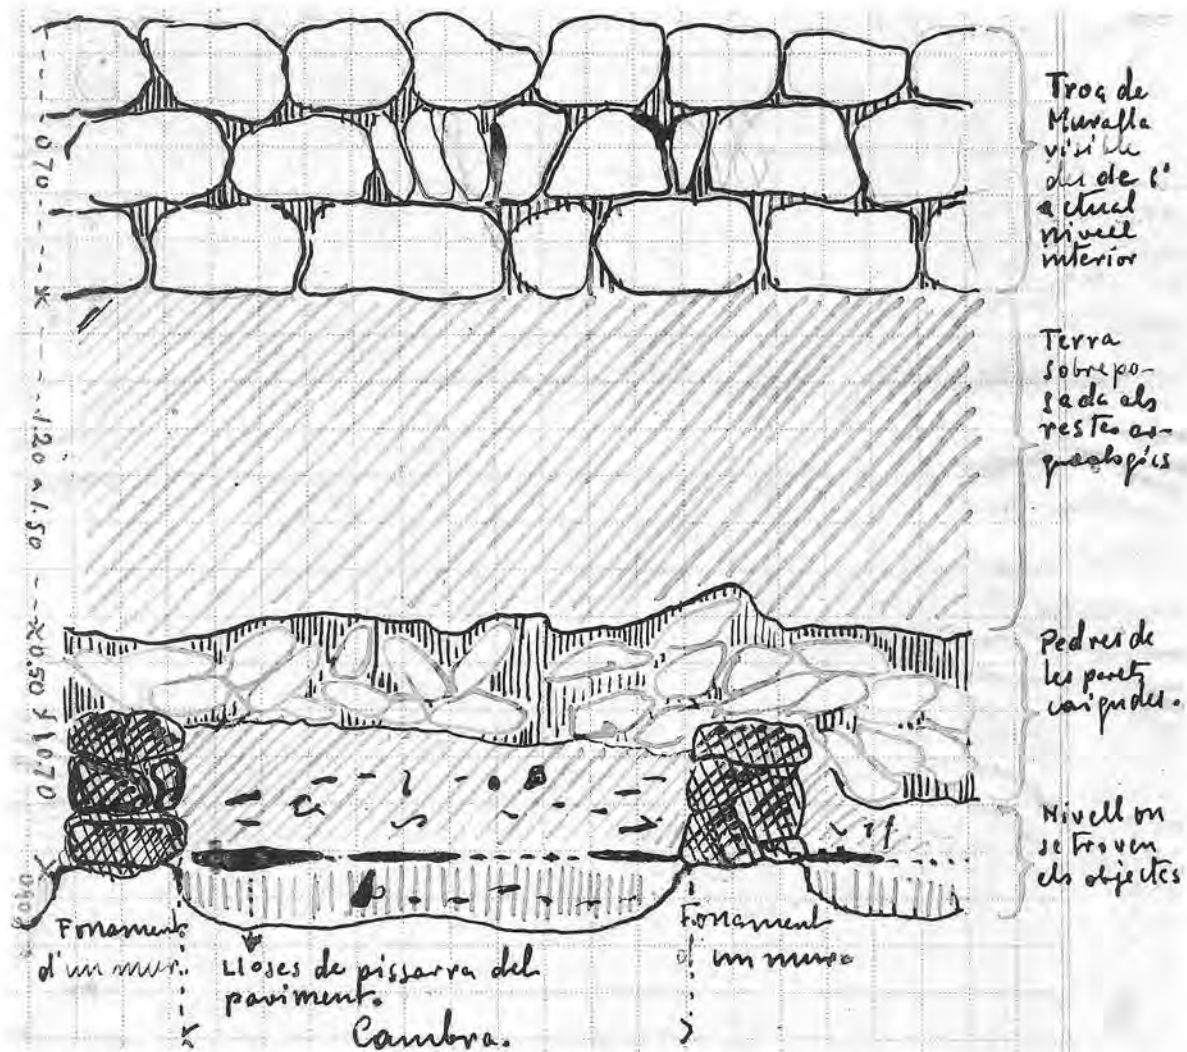 Troç de
Muralla
visible
des de l'
actual
nivell
interior
Terra
sobrepo-
sada als
restes ar-
queologics
Pedres de
les parets
caigudes.
Nivell on
se troven
els objectes
070
1.20 a 1.50
0.50
0.70
Fonament
d'un mur.
Lloses de pissarra del
paviment.
Fonament
d'un mur.
Cambra.